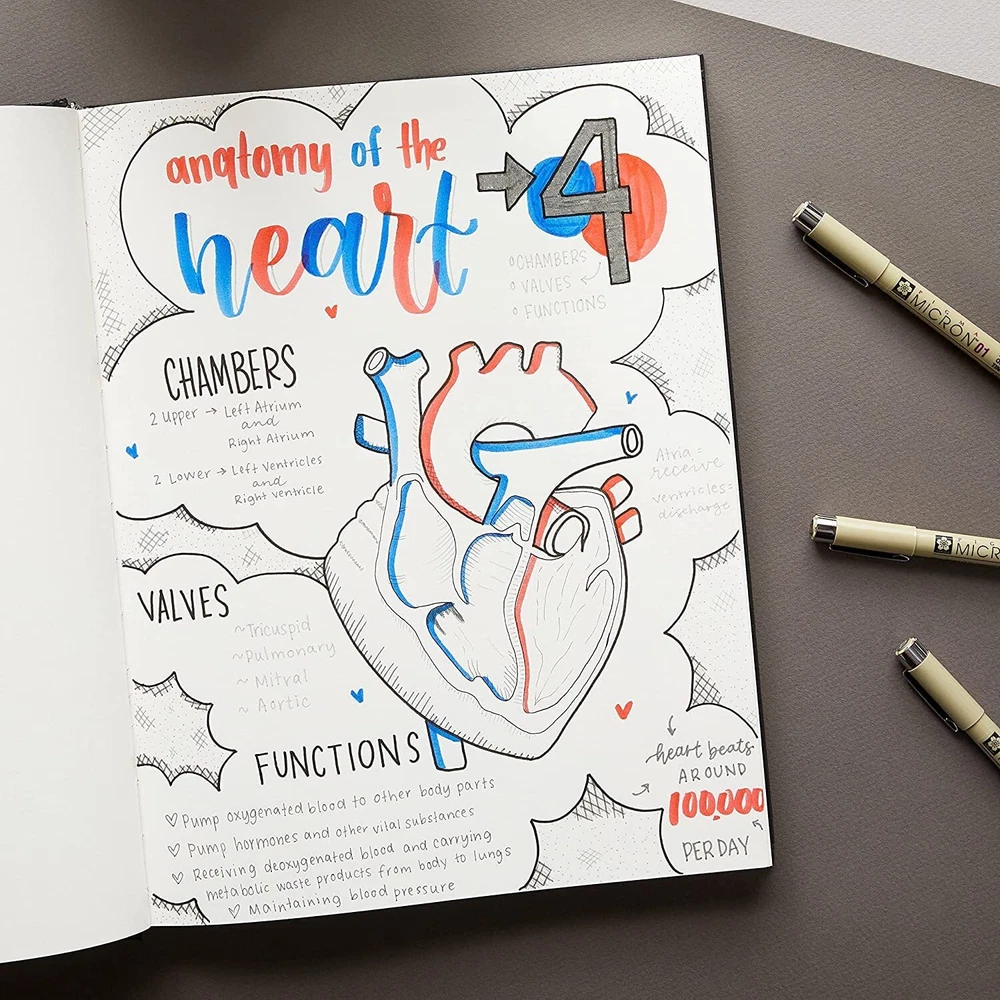 anatomy of the
heart
4
CHAMBERS
VALVES
FUNCTIONS
CHAMBERS
2 Upper → Left Atrium
and
Right Atrium
2 Lower → Left Ventricles
and
Right ventricle
Atria =
receive
ventricles=
discharge
VALVES
~Tricuspid
~Pulmonary
~ Mitral
~ Aortic
FUNCTIONS
♡ Pump oxygenated blood to other body parts
♡ Pump hormones and other vital substances
♡ Receiving deoxygenated blood and carrying
metabolic waste products from body to lungs
♡ Maintaining blood pressure
heart beats
AROUND
100,000
PER DAY
MICRON 01
MICR